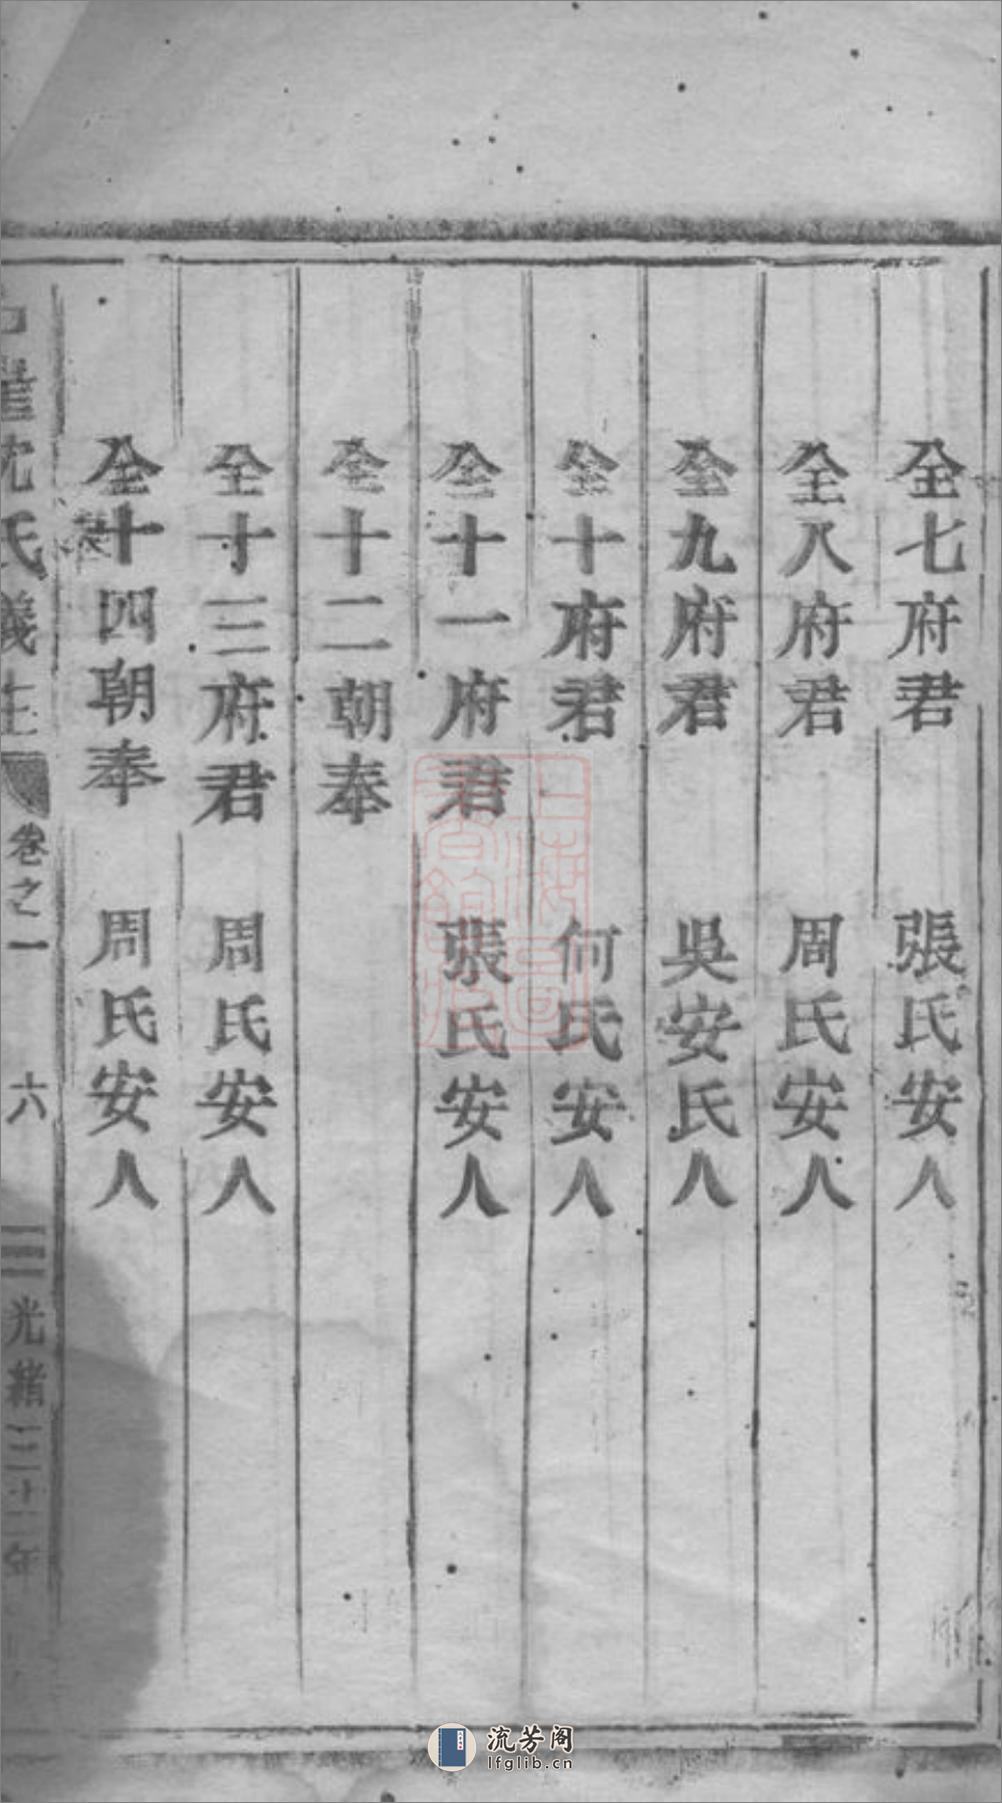 全七府君　張氏安人
全八府君　周氏安人
全九府君　吳安氏人
全十府君　何氏安人
全十一府君　張氏安人
全十二朝奉
全十三府君　周氏安人
全十四朝奉　周氏安人
沈氏義 卷之一　六　光緒三十二年
上海圖書館藏
流芳阁
lfglib.cn